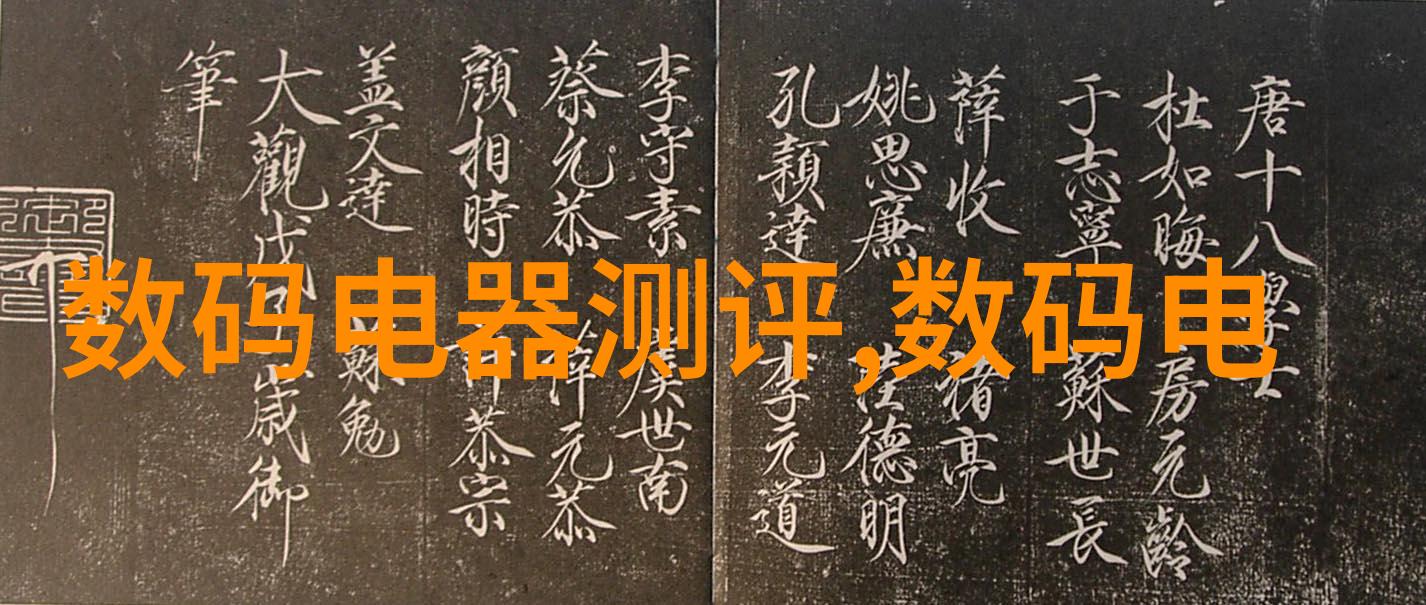 唐十八學士
杜如晦 房元齡
于志寧 蘇世長
薛收 褚亮
姚思廉 陸德明
孔穎達 李元道
李守素 虞世南
蔡允恭 薛元恭
顏相時 許恭宗
盖文達 蘇勉
大觀戊子歲御
筆
数码电器测评,数码电